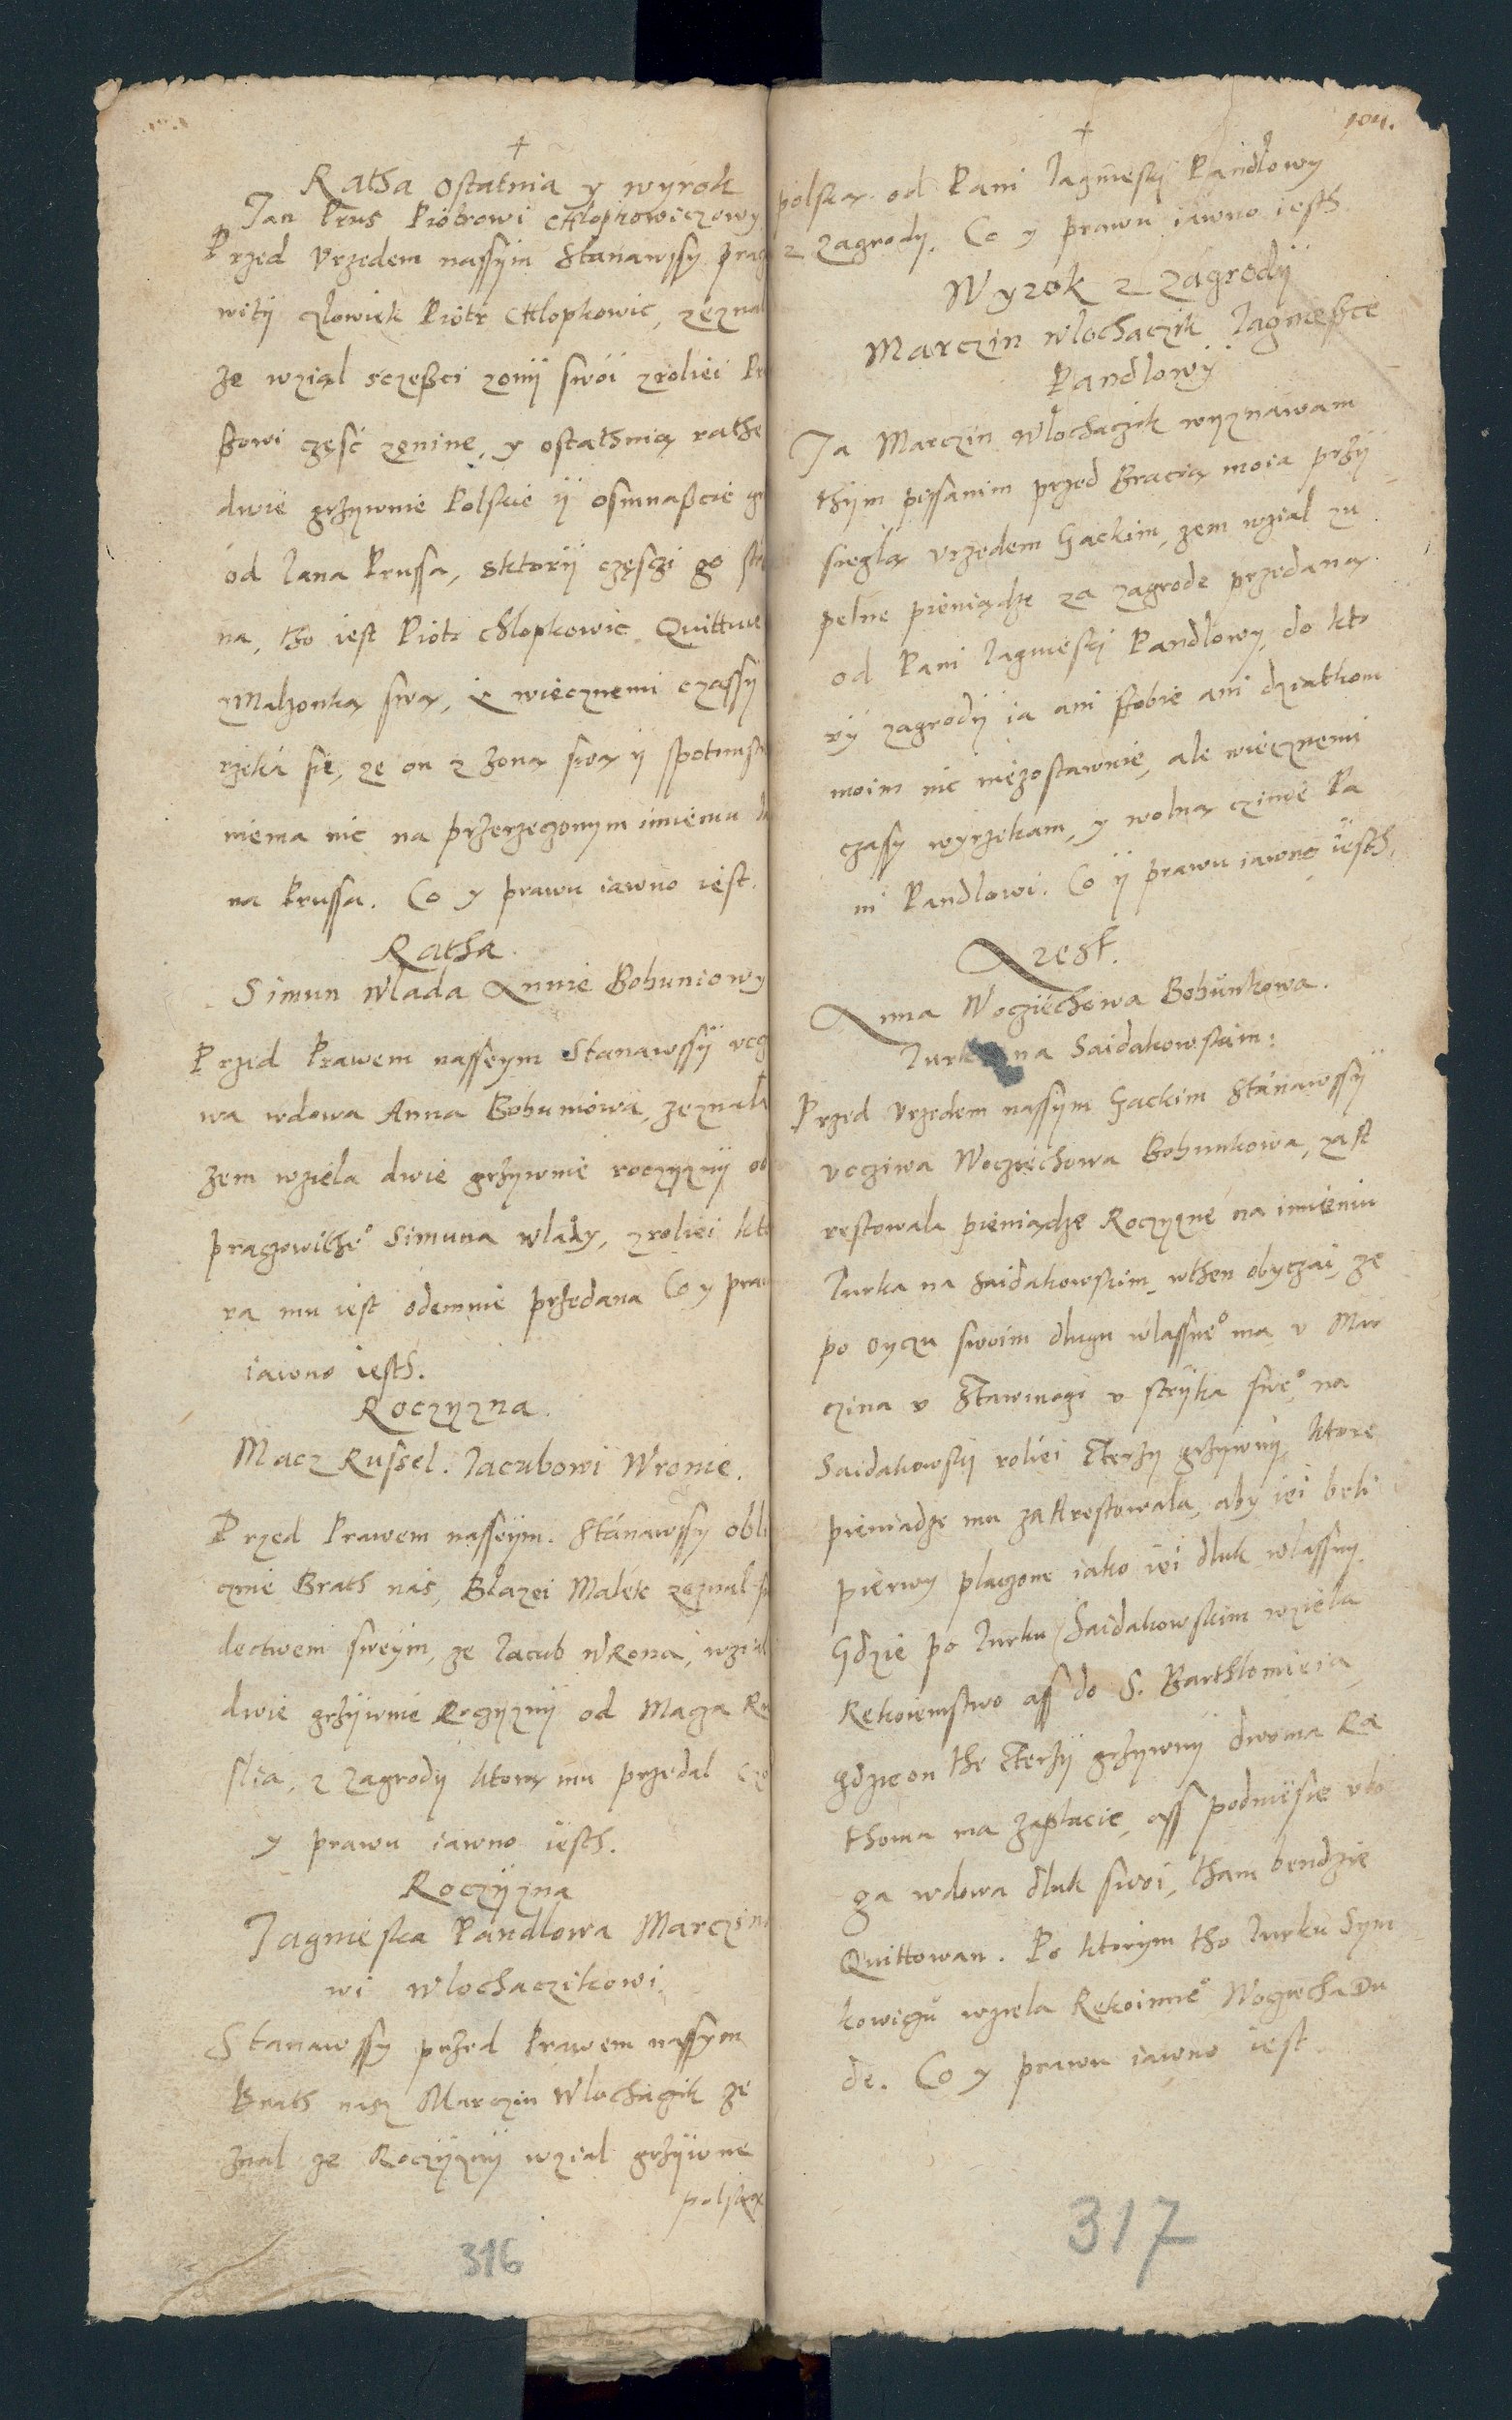 +
Ratha ostatnia y wyrok
Jan Prus Piotrowi Chlopkowiczowy
Przed Vrzedem nassym Stanawssy prag
witÿ czlowiek Piotr Chlopkowic, zeznal
ze wzial sczeßci zonÿ swoi zroliei Pr
ßowi częsć zenine, y ostathnią rathe
dwie grzywnie Polskie ÿ osmnaßcie gr
od Jana Prussa, sktorÿ częsczi go
na, tho iest Piotr Chlopkowic Quittuie
zMalzonką swą, y wiecznemi czassÿ
rzeka sie, ze on z zoną swą ÿ spotums
niema nic na przerzeczonym imieniu
na Prussa. Co y prawu iawno iest.
Ratha.
Simun Wlada Annie Bohuniowy
Przed Prawem nasseym Stanawssÿ vcz
wa wdowa Anna Bohuniowa, zeznala
zem wziela dwie grzywnie roczyznÿ od
praczowitheo Simuna wlady, zroliei kto
ra mu iest odemnie przedana Co y praw
iawno iesth.
Roczyzna.
Macz Russel. Jacubowi Wronie.
Przed Prawem nasseym. Stanawssy obli
cznie Brath nas, Blazei Malek zeznal
dectwem sweym, ze Jacub Wrona, wzial
dwie grzÿwnie Roczyznÿ od Macza Ru
slia, z zagrodÿ ktorą mu przedal Co
y prawu iawno iesth.
Roczÿzna
Jagnieska Pandlowa Marczino
wi Wlochaczikowi.
Stanawssy przed Prawem nassym
Brath nasz Marczin Wlochaczik ze
znal ze Roczÿznÿ wzial grzÿwne
polską
316
104.
+
polską od Pani Jagnieskÿ Pandlowy
z zagrody. Co y prawu iawno iesth
Wyrok z zagrodÿ
Marczin Wlochaczik Jagnießce
Pandlowÿ
Ja Marczin Wlochaczik wyznawam
thÿm pissanim przed Bracią moia przÿ
sieglą vrzedem Gackim, zem wzial zu
pelne pieniądze za zagrode przedaną
od Pani Jagnieskÿ Pandlowy, do kto
rÿ zagrodÿ ia ani ßobie ani dziatkom
moim nic niezostawuie, ale wiecznemi
czassy wyrzekam, y wolną czinie Pa
ni Pandlowi. Co ÿ prawu iawno iesth.
Arest.
Anna Wocziechowa Bohunkowa.
na Saidakowskim:
Przed Vrzedem nassym Gackim Stanawssÿ
vcziwa Wocziechowa Bohunkowa, zast
restowala pieniądze Roczyzne na imieniu
Jurka na Saidakowskim, wthen obyczai, ze
po oyczu swoim dlugu wlassneo ma v Mar
czina v Stawinogi v stryka sweo na
Saidakowskÿ roliei Cterzÿ grzywnÿ, ktore
pieniadze mu zaArestowala, aby iei beli
pierwy placzone iako iei dluk wlassny
Gdzie po Jurku Saidakowskim wziela
Rekoiemstwo ass do S. Barthlomieia
gdzie on the Cterzÿ grzywnÿ dwoma Ra
thoma ma zaplacic, ass podniesie vbo
ga wdowa dluk swoi, tham bendzie
Quittowan. Po ktorym tho Jurku Sym
kowiczu wziela Rekoimie Wociecha Du
de. Co y prawu iawno iest
317